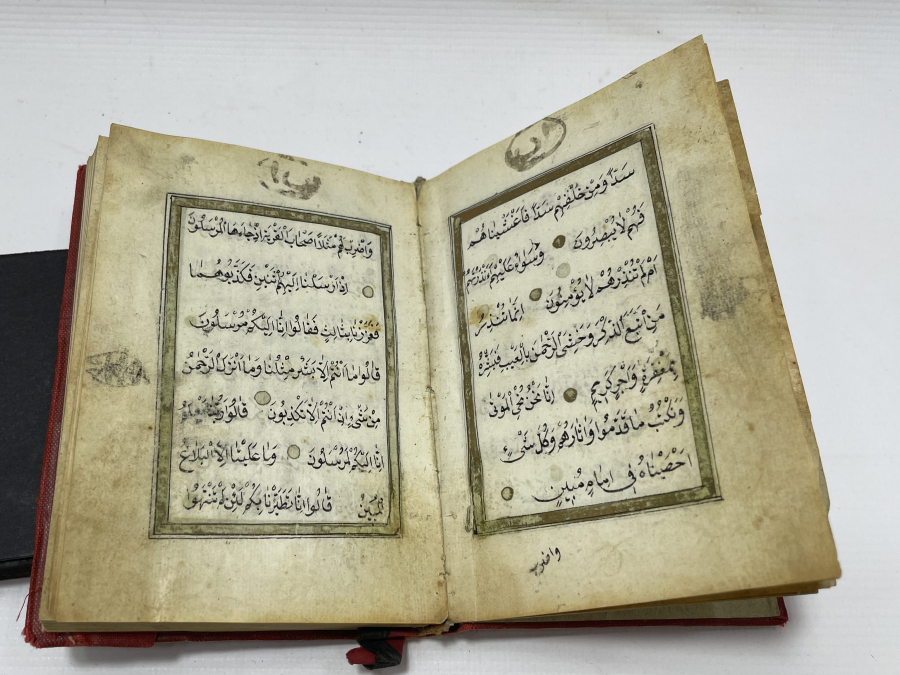 سَدًّا وَمِنْ خَلْفِهِمْ سَدًّا فَاَغْشَيْنَاهُمْ
فَهُمْ لَا يُبْصِرُونَ وَسَوَاءٌ عَلَيْهِمْ ءَاَنْذَرْتَهُمْ
اَمْ لَمْ تُنْذِرْهُمْ لَا يُؤْمِنُونَ اِنَّمَا تُنْذِرُ
مَنِ اتَّبَعَ الذِّكْرَ وَخَشِىَ الرَّحْمٰنَ بِالْغَيْبِ فَبَشِّرْهُ
بِمَغْفِرَةٍ وَاَجْرٍ كَرِيمٍ اِنَّا نَحْنُ نُحْيِ الْمَوْتٰى
وَنَكْتُبُ مَا قَدَّمُوا وَاٰثَارَهُمْ وَكُلَّ شَىْءٍ
اَحْصَيْنَاهُ فِى اِمَامٍ مُبِينٍ
واضرب
وَاضْرِبْ لَهُمْ مَثَلًا اَصْحَابَ الْقَرْيَةِ اِذْ جَاءَهَا الْمُرْسَلُونَ
اِذْ اَرْسَلْنَا اِلَيْهِمُ اثْنَيْنِ فَكَذَّبُوهُمَا
فَعَزَّزْنَا بِثَالِثٍ فَقَالُوا اِنَّا اِلَيْكُمْ مُرْسَلُونَ
قَالُوا مَا اَنْتُمْ اِلَّا بَشَرٌ مِثْلُنَا وَمَا اَنْزَلَ الرَّحْمٰنُ
مِنْ شَىْءٍ اِنْ اَنْتُمْ اِلَّا تَكْذِبُونَ قَالُوا رَبُّنَا يَعْلَمُ
اِنَّا اِلَيْكُمْ لَمُرْسَلُونَ وَمَا عَلَيْنَا اِلَّا الْبَلَاغُ
الْمُبِينُ قَالُوا اِنَّا تَطَيَّرْنَا بِكُمْ لَئِنْ لَمْ تَنْتَهُوا